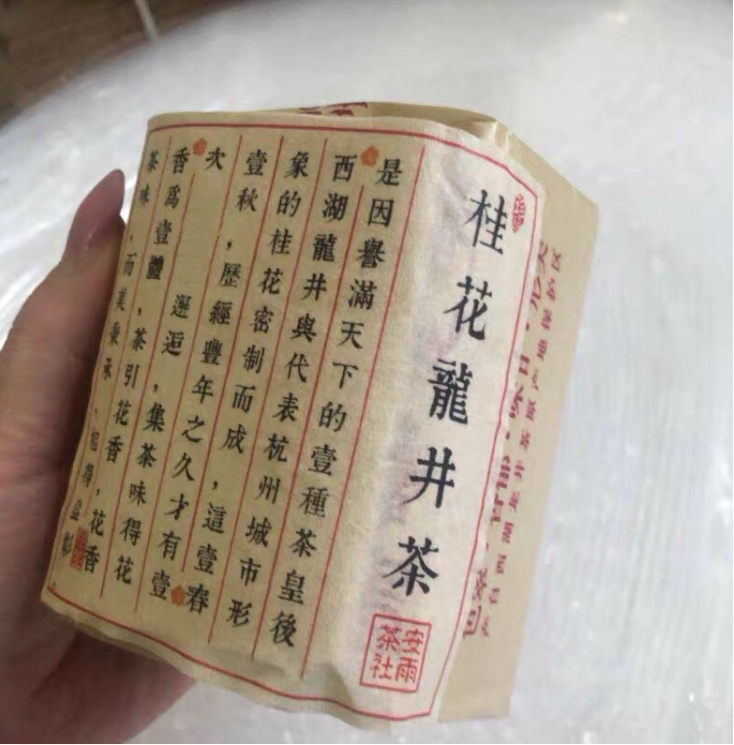 桂花龍井茶
安雨
茶社
是因譽滿天下的壹種茶皇後
西湖龍井與代表杭州城市形
象的桂花密制而成,這壹春
壹秋,歷經豐年之久才有壹
次 邂逅,集茶味得花
香爲壹體,茶引花香,花香
茶味,而美秉承、相得益彰